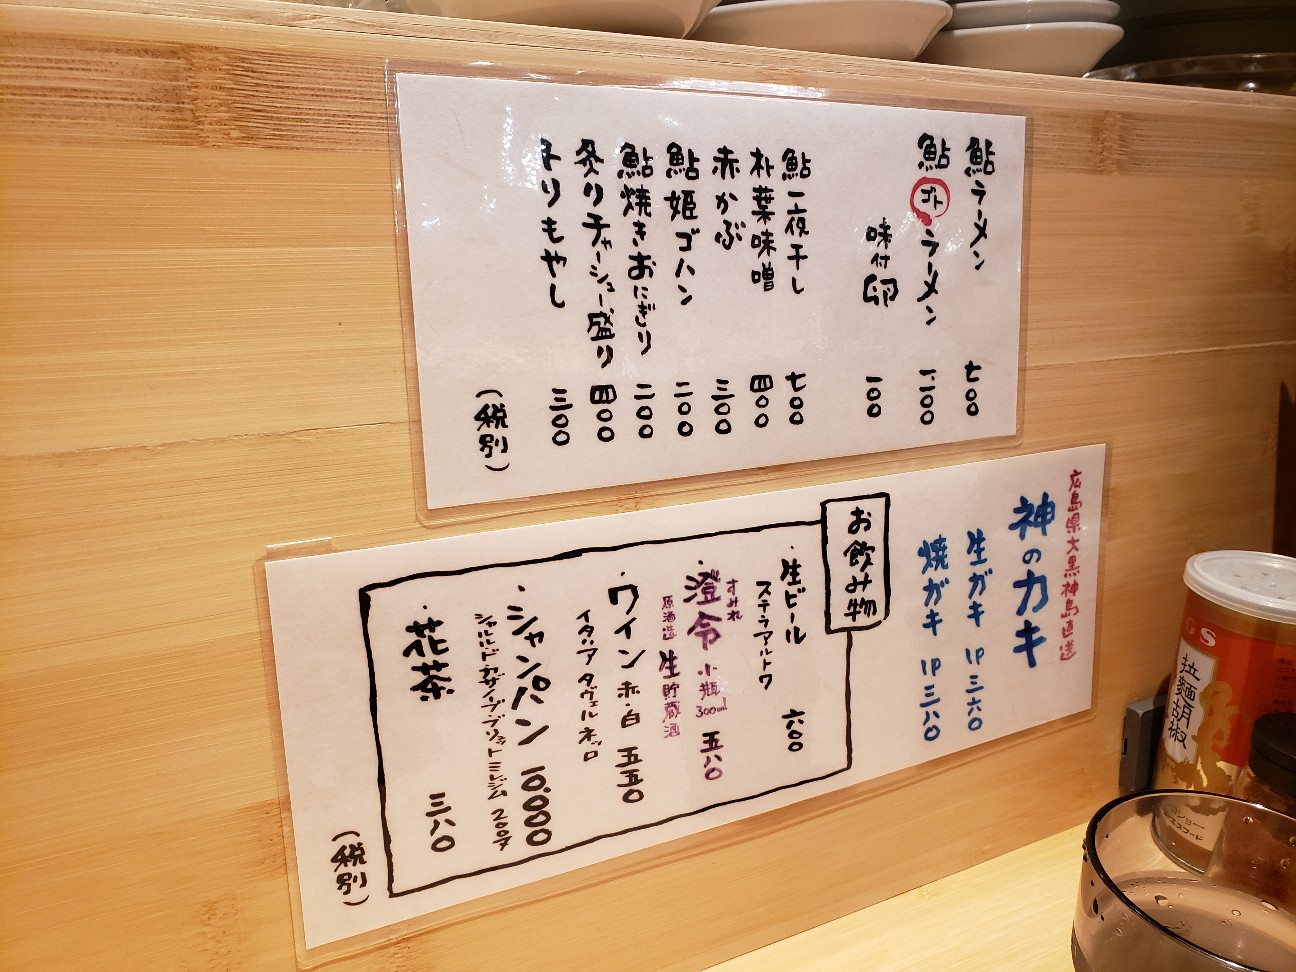 鮎ラーメン 七〇〇
鮎ゴトラーメン 一、二〇〇
味付卵 一〇〇
鮎一夜干し 七〇〇
朴葉味噌 四〇〇
赤かぶ 三〇〇
鮎姫ゴハン 二〇〇
鮎焼きおにぎり 二〇〇
炙りチャーシュー盛り 四〇〇
ネリもやし 三〇〇
(税別)
広島県大黒神島直送
神のカキ
生ガキ 1P 三六〇
焼ガキ 1P 三八〇
お飲み物
・生ビール
ステラアルトワ 六〇〇
すみれ
・澄令 小瓶 300ml 五八〇
原酒造 生貯蔵酒
・ワイン 赤・白 五五〇
イタリア タヴェルネッロ
・シャンパン 一〇、〇〇〇
シャルル・ド・カザノーブ・ブリュット ミレジム 2007
・花茶 三八〇
(税別)
GS
拉麺胡椒